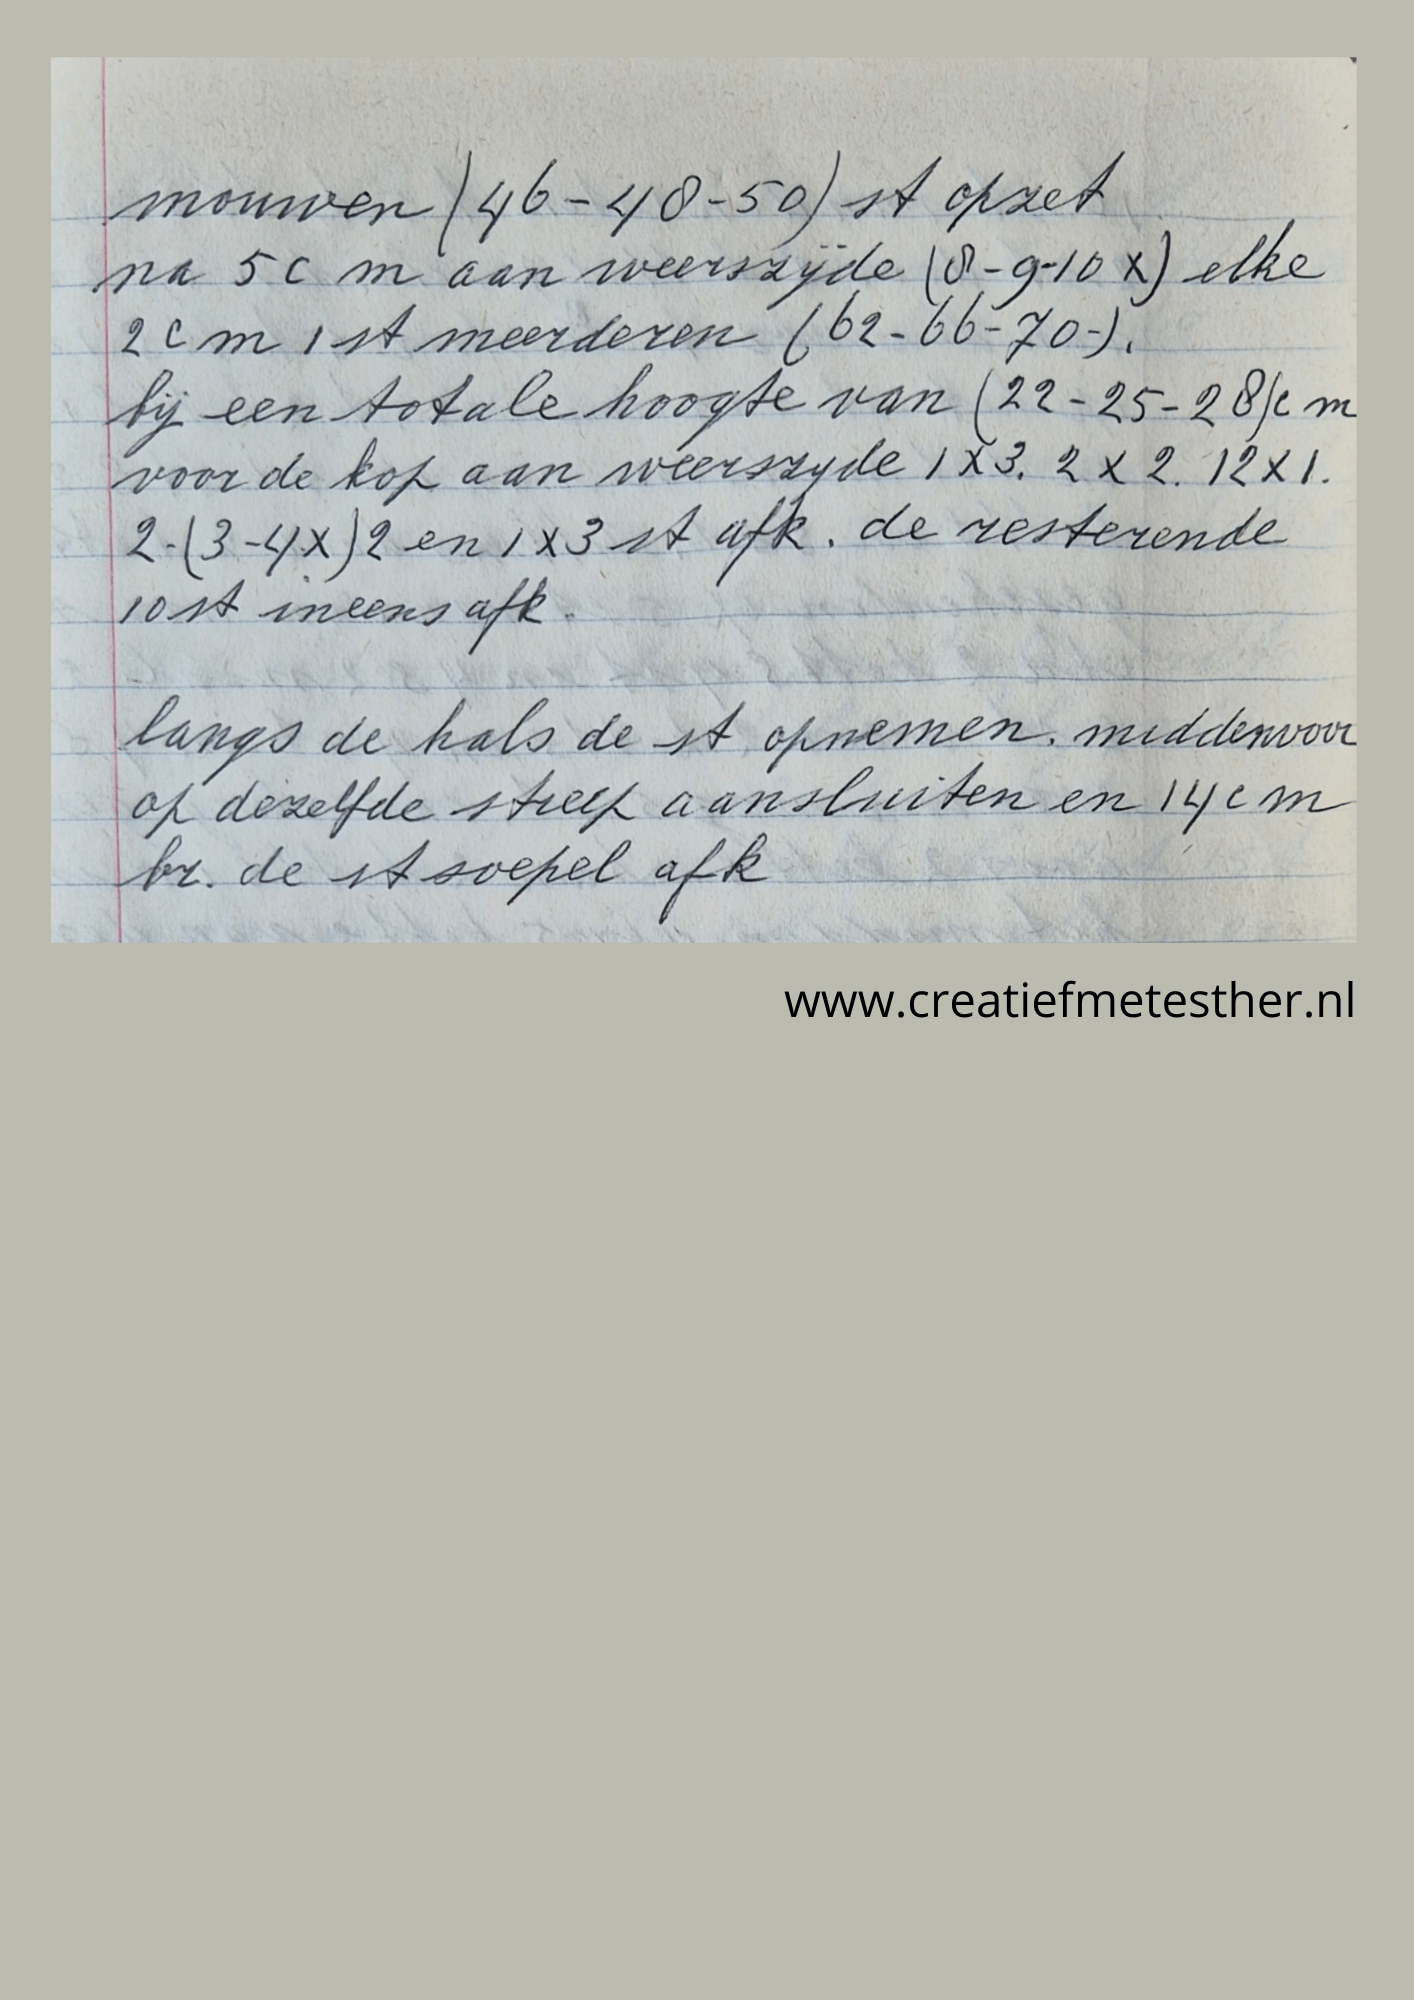 mouwen (46-48-50) st opzet
na 5 c m aan weerszijde (8-9-10 x) elke
2 c m 1 st meerderen (62-66-70-).
bij een totale hoogte van (22-25-28) c m
voor de kop aan weerszyde 1 x 3. 2 x 2. 12 x 1.
2-(3-4x) 2 en 1 x 3 st afk. de resterende
10 st ineens afk.
langs de hals de st opnemen. middenvoor
op dezelfde streep aansluiten en 14 c m
br. de st soepel afk
www.creatiefmetesther.nl